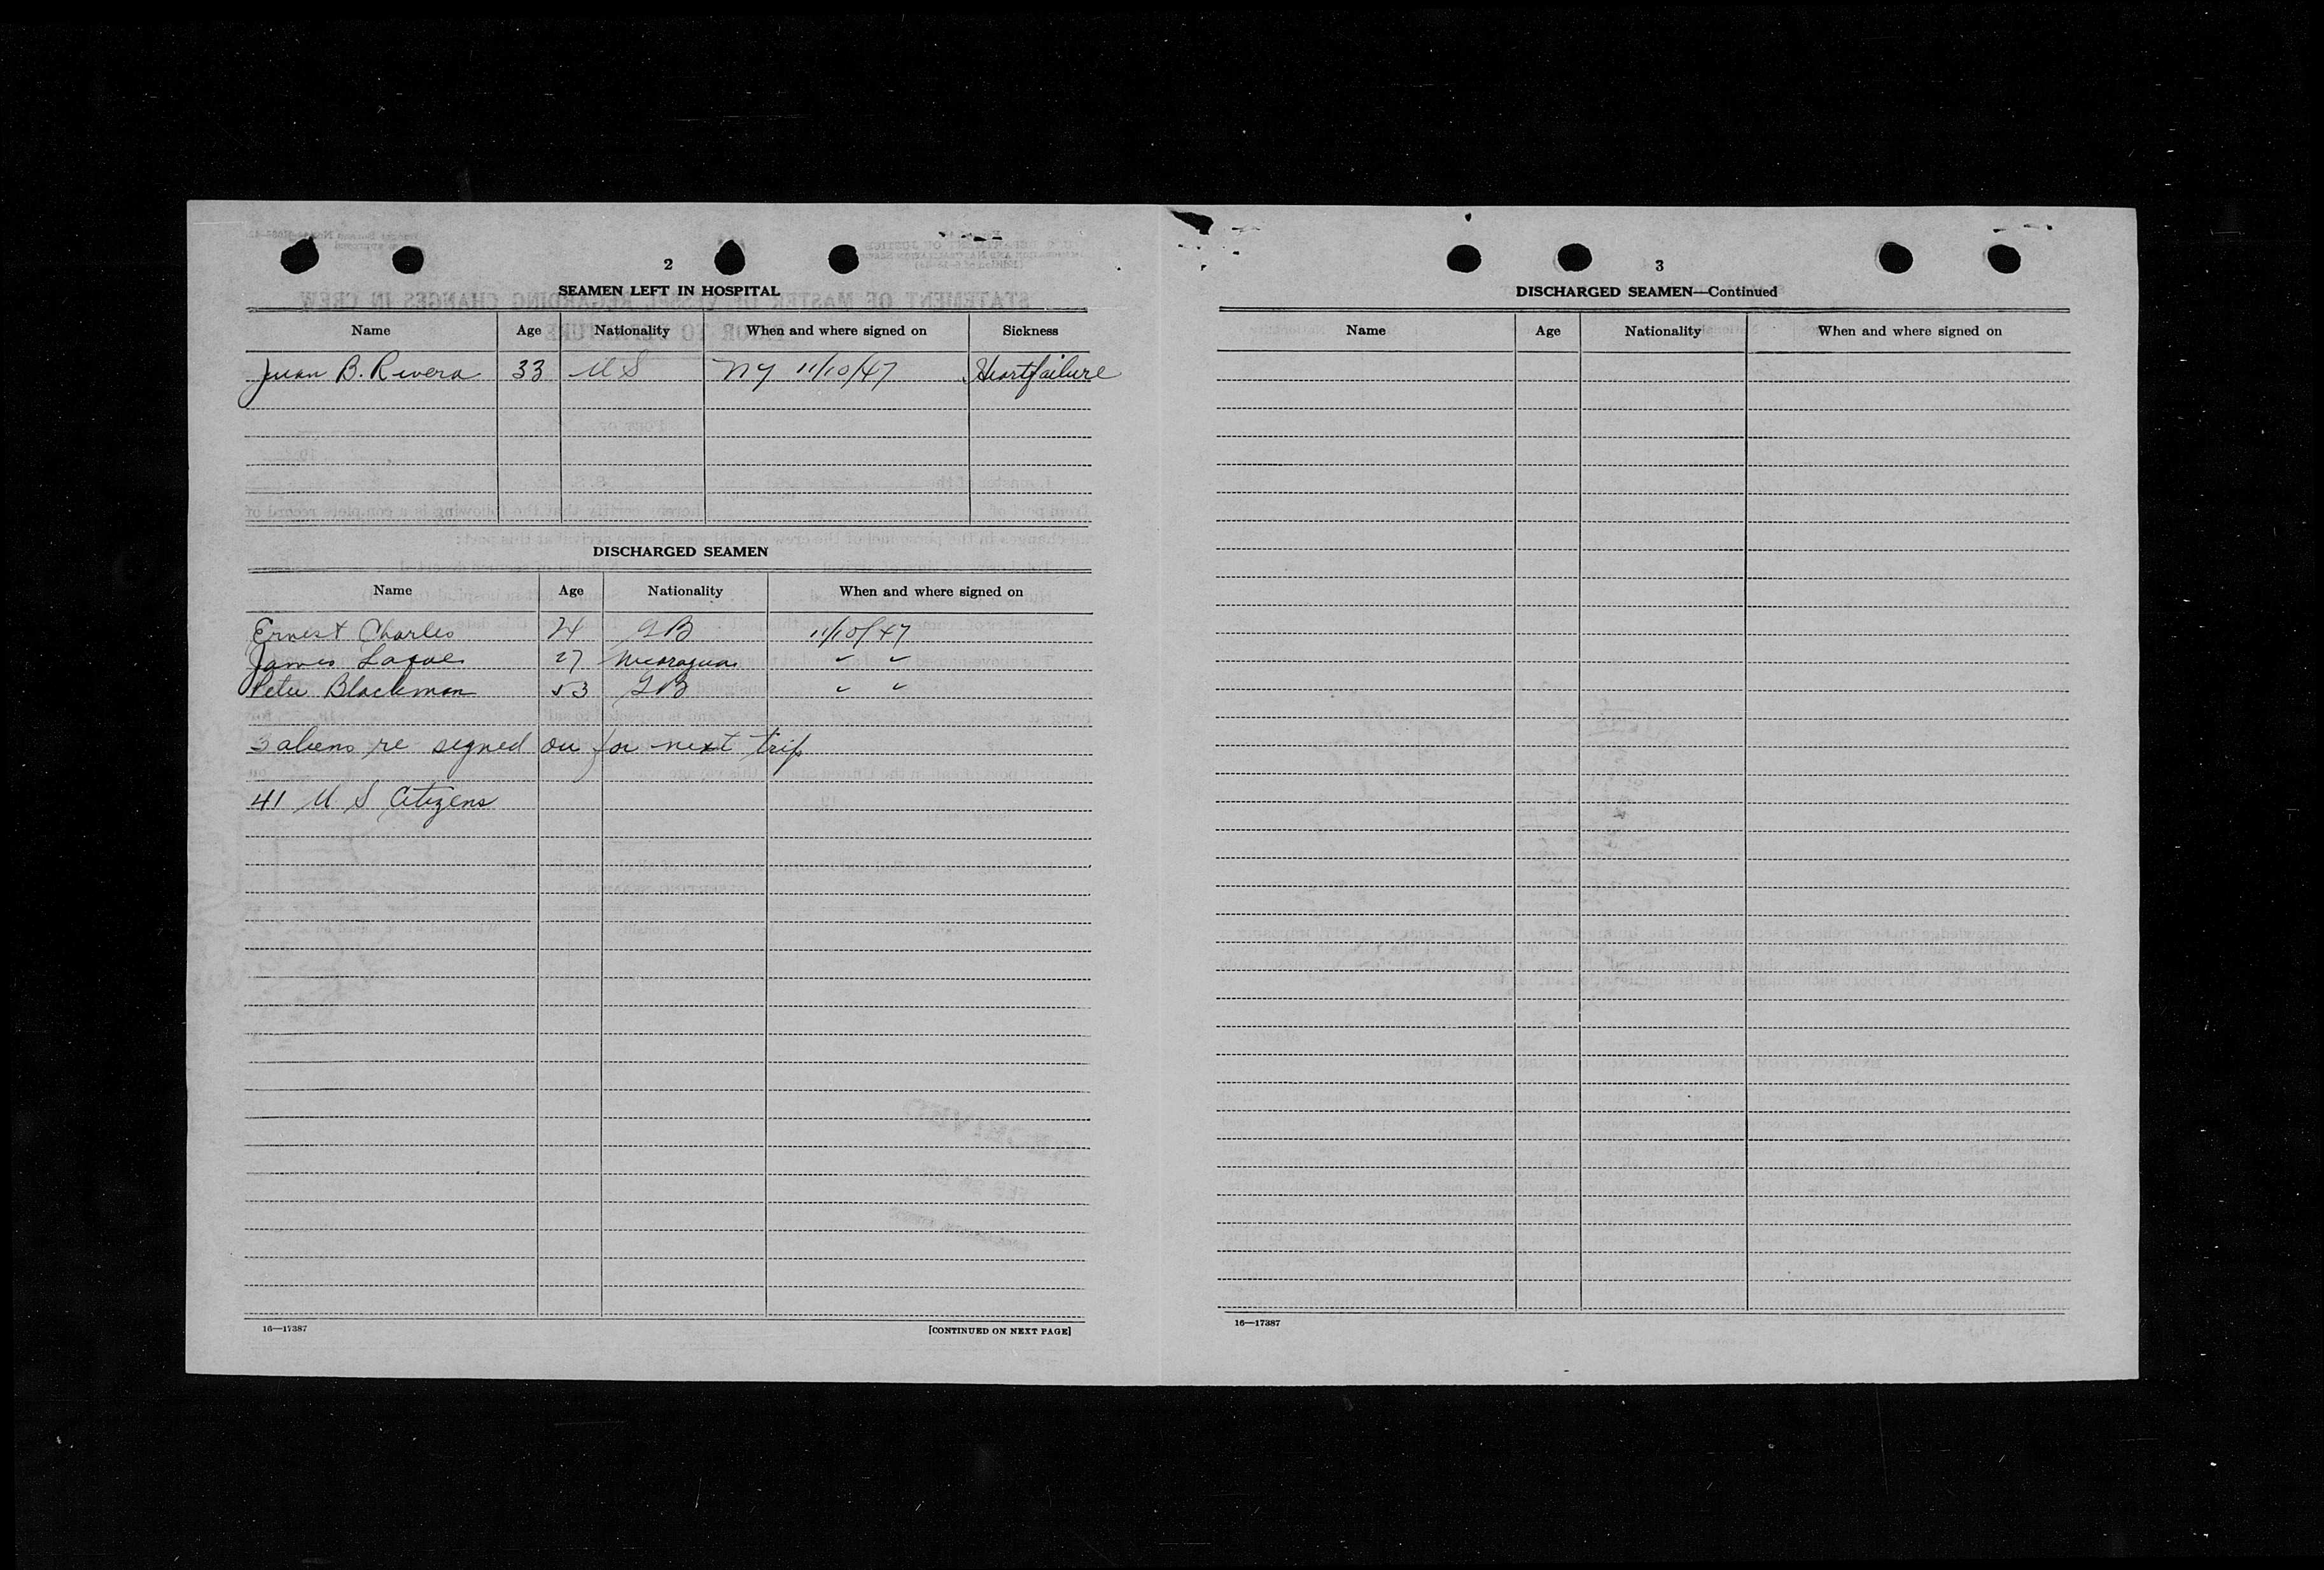 2
SEAMEN LEFT IN HOSPITAL
Name Age Nationality When and where signed on Sickness
Juan B. Rivera 33 U S NY 11/10/47 Heartfailure
DISCHARGED SEAMEN
Name Age Nationality When and where signed on
Ernest Charles 24 GB 11/10/47
James 27 Nicaragua " "
Peter Blackman 53 GB " "
3 aliens re signed on for next trip
41 U S Citizens
16—17387 [CONTINUED ON NEXT PAGE]
3
DISCHARGED SEAMEN—Continued
Name Age Nationality When and where signed on
16—17387